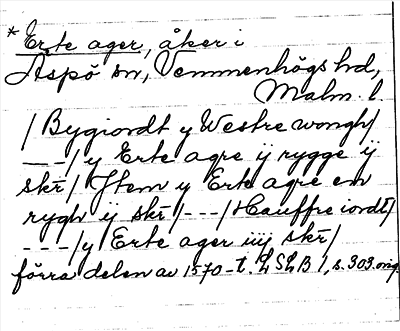 * Erte ager, åker i
Aspö sn, Vemmenhögs hd,
Malm. l.
/ Bygiordt y Westre wongh/
---/ y Erte agre ij rygge ij
skr̄/ Jtem y Erte agre en
rygh ij skr̄/---/ Hauffre iordt/
---/y Erte ager iiij skr̄/
förra delen av 1570-t. LSLB 1, s. 303. orig.